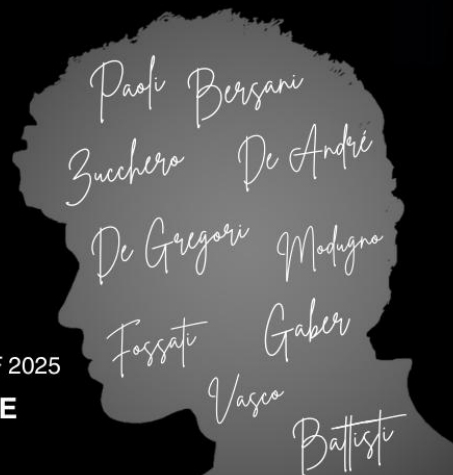 Paoli Bersani
Zucchero De André
De Gregori Modugno
Fossati Gaber
2025
E
Vasco
Battisti